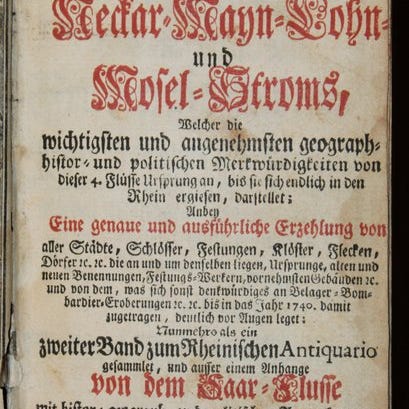 Neckar-Mayn-Lohn-
und
Mosel-Stroms,
Welcher die
wichtigsten und angenehmsten geograph-
histor- und politischen Merkwürdigkeiten von
dieser 4. Flüsse Ursprung an, bis sie sich endlich in den
Rhein ergiesen, darstellet;
Anbey
Eine genaue und ausführliche Erzehlung von
aller Städte, Schlösser, Festungen, Klöster, Flecken,
Dörfer ꝛc. ꝛc. die an und um denselben liegen, Ursprunge, alten und
neuen Benennungen, Festungs-Werckern, vornehmsten Gebäuden ꝛc.
und von dem, was sich sonst denkwürdiges an Belager- Bom-
bardier-Eroberungen ꝛc. ꝛc. bis in das Jahr 1740. damit
zugetragen, deutlich vor Augen leget;
Nunmehro als ein
zweiter Band zum Rheinischen Antiquario
gesammlet, und ausser einem Anhange
von dem Saar-Flusse
mit histor-